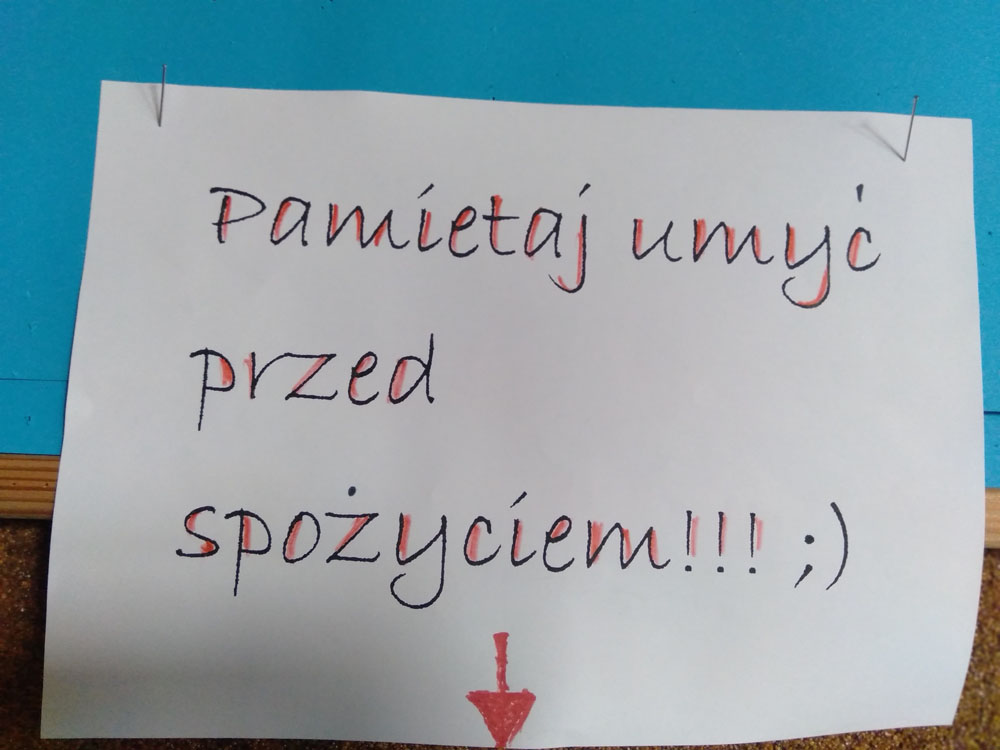 Pamietaj umyć
przed
spożyciem!!! ;)